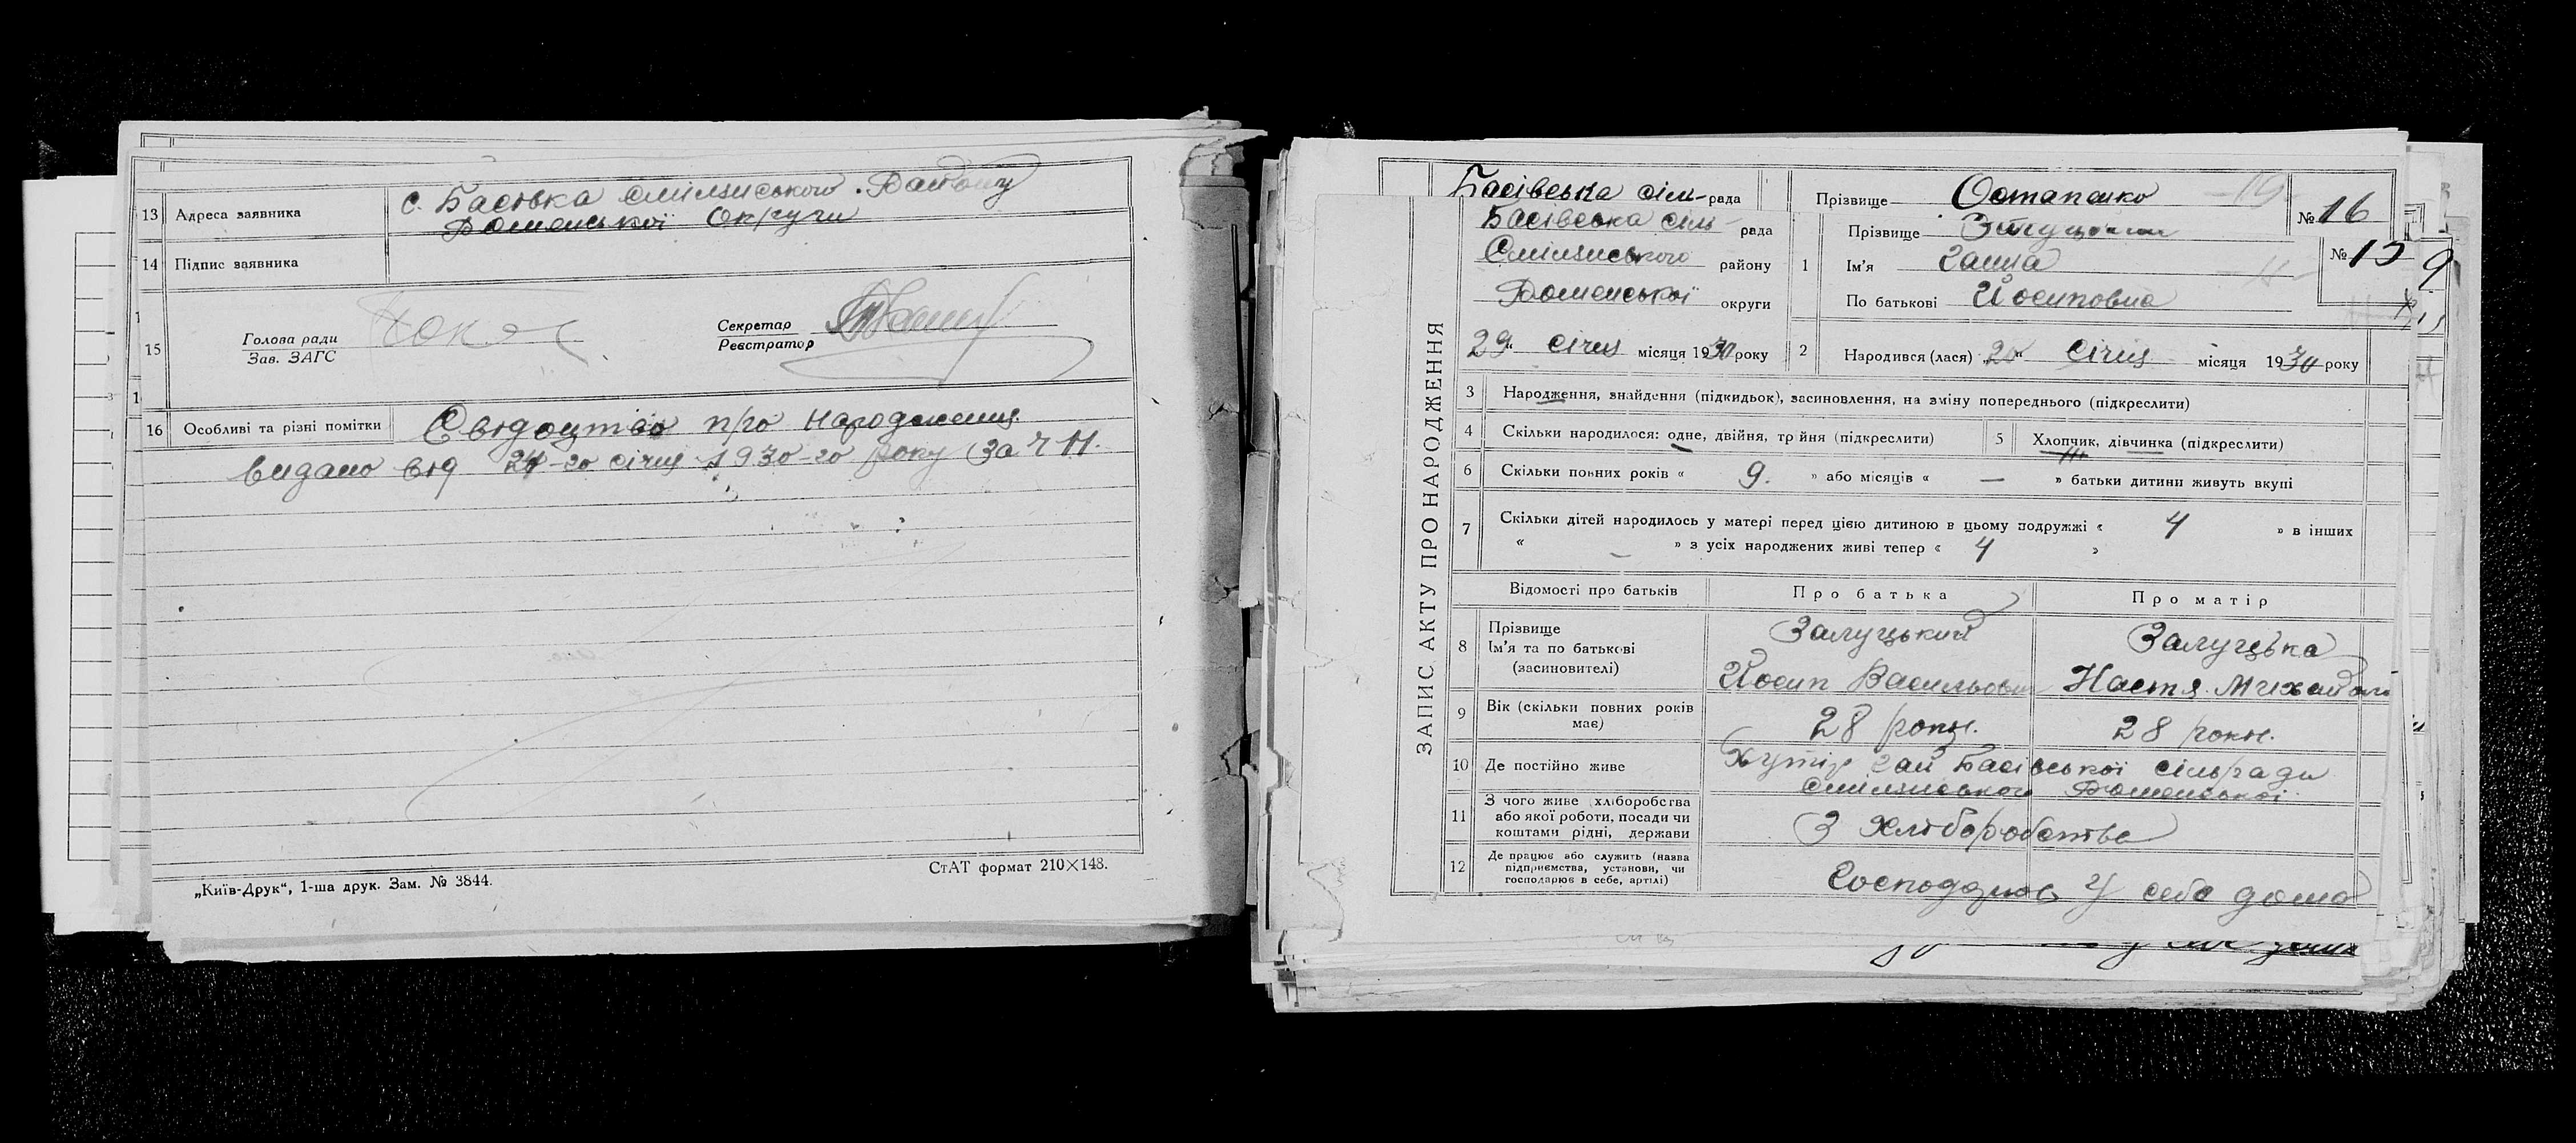 13 Адреса заявника с. Басівка Смілянського Району
Роменської Округи
14 Підпис заявника
15 Голова ради
Зав. ЗАГС
Секретар
Реєстратор
16 Особливі та різні помітки Свідоцтво про народження
видано від 24-го січня 1930-го року за Ч 11.
„Київ-Друк“, 1-ша друк. Зам. № 3844.
СтАТ формат 210×148.
Басівська сіль-рада Прізвище Остапенко № 16
ЗАПИС АКТУ ПРО НАРОДЖЕННЯ
Басівська сіль рада
Смілянського району
Роменської округи
29 січня місяця 1930 року
1 Прізвище
Ім'я Ганна
По батькові Йосиповна
№ 15
2 Народився (лася) січня місяця 1930 року
3 Народження, знайдення (підкидьок), засиновлення, на зміну попереднього (підкреслити)
4 Скільки народилося: одне, двійня, трійня (підкреслити) 5 Хлопчик, дівчинка (підкреслити)
6 Скільки повних років « 9. » або місяців « — » батьки дитини живуть вкупі
7 Скільки дітей народилось у матері перед цією дитиною в цьому подружжі « 4 » в інших
« – » з усіх народжених живі тепер « 4 »
Відомості про батьків Про батька Про матір
8 Прізвище
Ім'я та по батькові
(засиновителі)
Залуцький
Йосип Васильович
Залуцька
Настя Михайлів
9 Вік (скільки повних років має) 28 роки. 28 роки.
10 Де постійно живе Хутір Гай Басівської сільради
Смілянського Роменської
11 З чого живе (хліборобства
або якої роботи, посади чи
коштами рідні, держави
З хліборобства
12 Де працює або служить (назва
підприємства, установи, чи
господарює в себе, артілі)
у себе дома